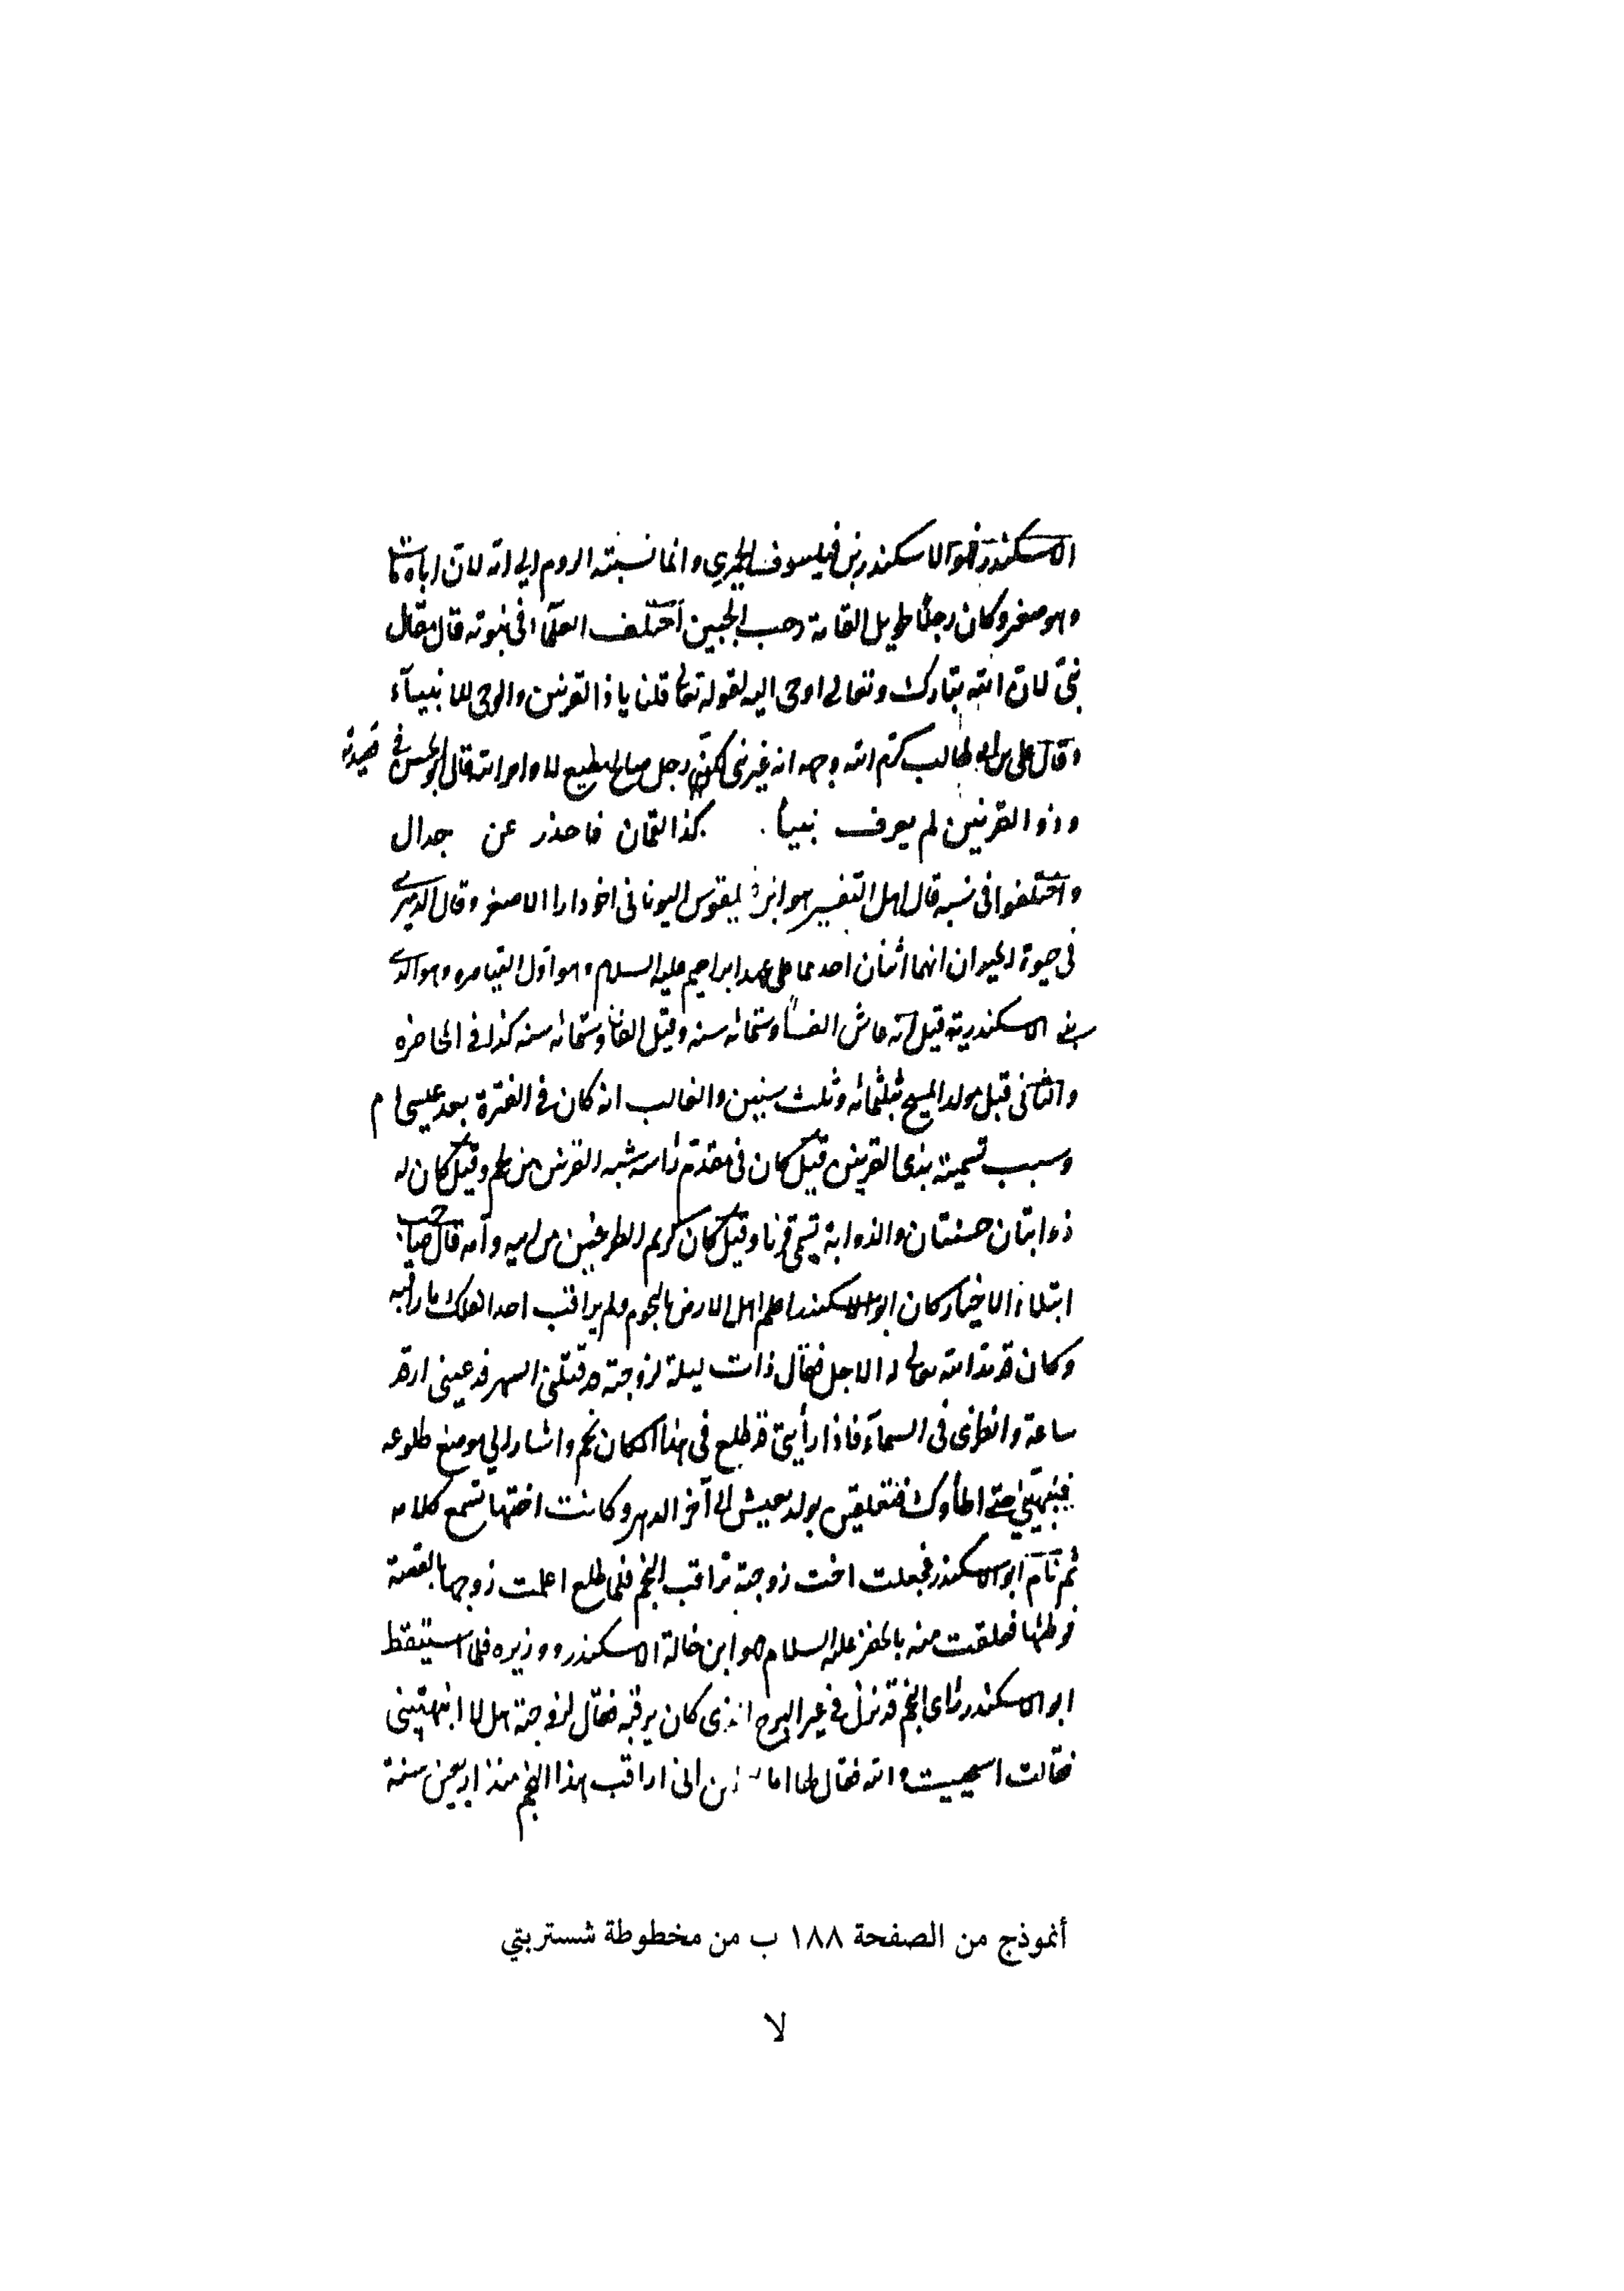 الاسكندر فهو الاسكندر بن فيلسوف الحميرى وانما نسبته الروم الى امّه لان اباه مات
وهو صغير وكان رجلاً طويل القامة رحب الجبين اختلف العلمآء فى نبوته قال مقاتل
نبىّ لانّ الله تبارك وتعالى اوحى اليه لقوله تعالى قلنا ياذا القرنين والوحى للانبيآء
وقال على بن ابى طالب كرّم الله وجهه انه غير نبى لكنّه رجل صالح مطيع لاوامر الله قال ابو الحسن فى قصيدته
وذو القرنين لم يعرف نبيأ كذا لقمان فاحذر عن جدال
واختلفوا فى نسبه قال اهل التفسير هو ابن اليونانى اخو دارا الاصغر وقال الدميرى
فى حيوة الحيوان انهما اثنان احدهما على عهد ابراهيم عليه السلام وهو اوّل القياصره وهو الذى
بنى الاسكندرية قيل انّه عاش الفاً وستمائه سنه وقيل الفاً وستمائه سنه كذا فى المحاضره
والثانى قبل مولد المسيح بثلثمائه وثلث سنين والغالب انه كان فى الفترة بعد عيسى ام
وسبب تسميته بذى القرنين قيل كان فى مقدّم راسه شبه القرنين من لحم وقيل كان له
ذوابتان حسنتان والذوابة تسمّى قرنا وقيل كان كريم الطرفين من ابيه وامّه قال صاحب
ابتلاء الاخيار كان ابو الاسكندر اعلم اهل الارض بالنجوم ولم يراقب احد الفلك ما راقبه
وكان قد مدّ الله تعالى له الاجل فقال ذات ليلة لزوجته قد قتلنى السهر فدعينى ارقد
ساعة وانظرى فى السمآء فاذا رأيتى قد طلع فى هذا المكان نجم واشار الى موضع طلوعه
فنبّهينى حتى اطأوك فتعلقين بولد يعيش الى آخر الدهر وكانت اختها تسمع كلامه
ثم نام ابو الاسكندر فجعلت اخت زوجته تراقب النجم فلما طلع اعلمت زوجها بالقصة
فوطئها فعلقت منه بالخضر عليه السلام هو ابن خالة الاسكندر ووزيره فلما استيقظ
ابو الاسكندر راى النجم قد نزل فى غير البرج الذى كان يرقبه فقال لزوجته هل لا انبهتينى
فقالت اسحييت والله فقال لها اما انى اراقب هذا النجم منذ اربعين سنة
أنموذج من الصفحة ١٨٨ ب من مخطوطة شستربتي
لا